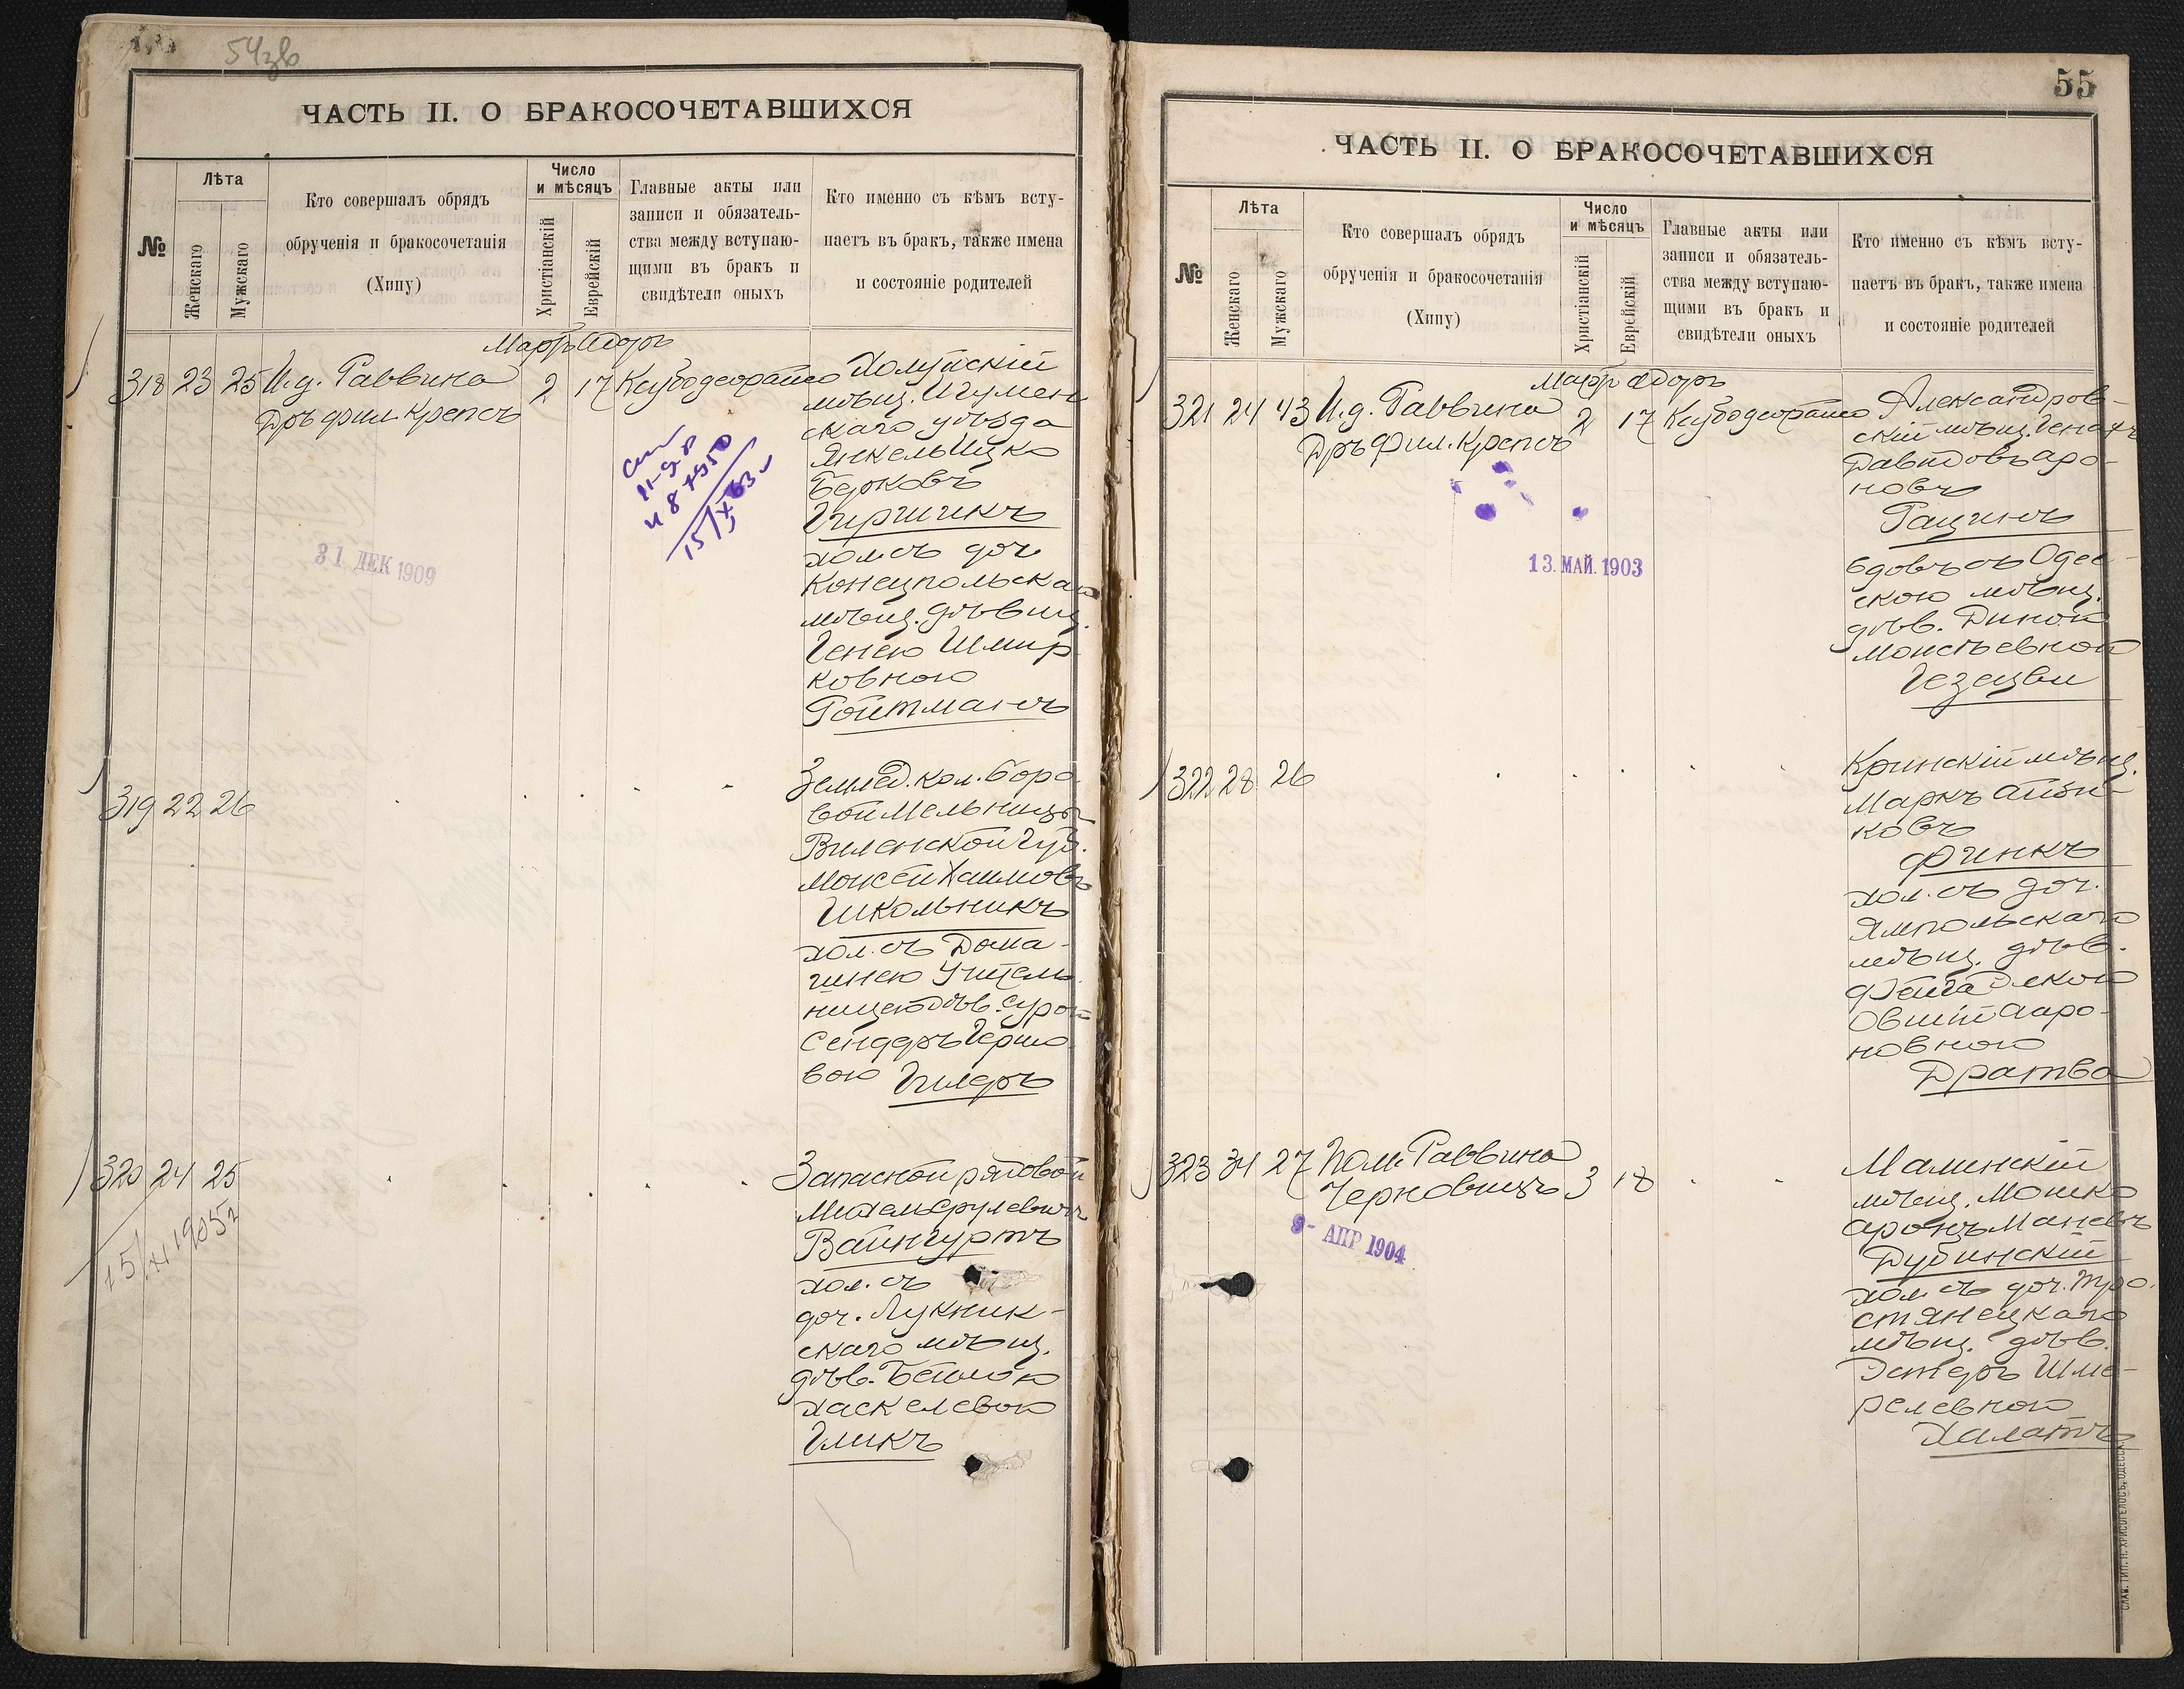 54зв
ЧАСТЬ II. О БРАКОСОЧЕТАВШИХСЯ
№
Лѣта
Женскаго
Мужскаго
Кто совершалъ обрядъ
обрученія и бракосочетанія
(Хипу)
Число
и мѣсяцъ
Христіанскій
Еврейскій
Главные акты или
записи и обязатель-
ства между вступаю-
щими въ бракъ и
свидѣтели оныхъ
Кто именно съ кѣмъ всту-
паетъ въ бракъ, также имена
и состояніе родителей
Мартъ Адоръ
318 23 25 И.д. Раввина 2 17
Дръ фил. Крепсъ
Холуйскій
мѣщ. Игумен
скаго уѣзда
Янкель Ицко
Берковъ
Гиршикъ
хол. съ доч.
Конецпольскаго
мѣщ. дѣвиц.
Генею Шмир
ковною
Ройтманъ
15/X 63
31 ДЕК 1909
319 22 26
Землед. кол. Боро
вой Мельницы
Виленской Губ.
Моисей Хаимовъ
Школьникъ
хол. съ Дома-
шнею Учитель
ницею дѣв. Сурой
Сендеръ Герш
вою Гилеръ
320 24 25
15/XI 1905 г
Запасной рядовой
Михель Срулевичъ
Вайнгуртъ
хол. съ
доч. Лукник-
скаго мѣщ.
дѣв. Бейлою
Хаскелевою
Гликъ
55
ЧАСТЬ II. О БРАКОСОЧЕТАВШИХСЯ
№
Лѣта
Женскаго
Мужскаго
Кто совершалъ обрядъ
обрученія и бракосочетанія
(Хипу)
Число
и мѣсяцъ
Христіанскій
Еврейскій
Главные акты или
записи и обязатель-
ства между вступаю-
щими въ бракъ и
свидѣтели оныхъ
Кто именно съ кѣмъ всту-
паетъ въ бракъ, также имена
и состояніе родителей
Мартъ Адоръ
321 24 43 И.д. Раввина 2 17
Дръ Фил. Крепсъ
Александров-
скій мѣщ.
Давидовъ Аро-
новъ
Рацинъ
вдовъ съ Одес-
скою мѣщ.
дѣв. Диной
Моисѣевной
Гезецви
13. МАЙ. 1903
322 28 26
Кринскій мѣщ.
Маркъ Айзи-
ковъ
Финкъ
хол. съ доч.
Ямпольскаго
мѣщ. дѣв.
Овшій Ааро-
новною
Дратва
323 34 27 Пом. Раввина
Черновицъ 3 18
9- АПР 1904
Малинскій
мѣщ. Мошко
Аронъ Маневъ
Дубинскій
хол. съ доч. Тро-
стянецкаго
мѣщ. дѣв.
Эстеръ Шме-
релевною
Халатъ
СЛАВ. ТИП. Н. ХРИСОГЕЛОСЪ, ОДЕССА.